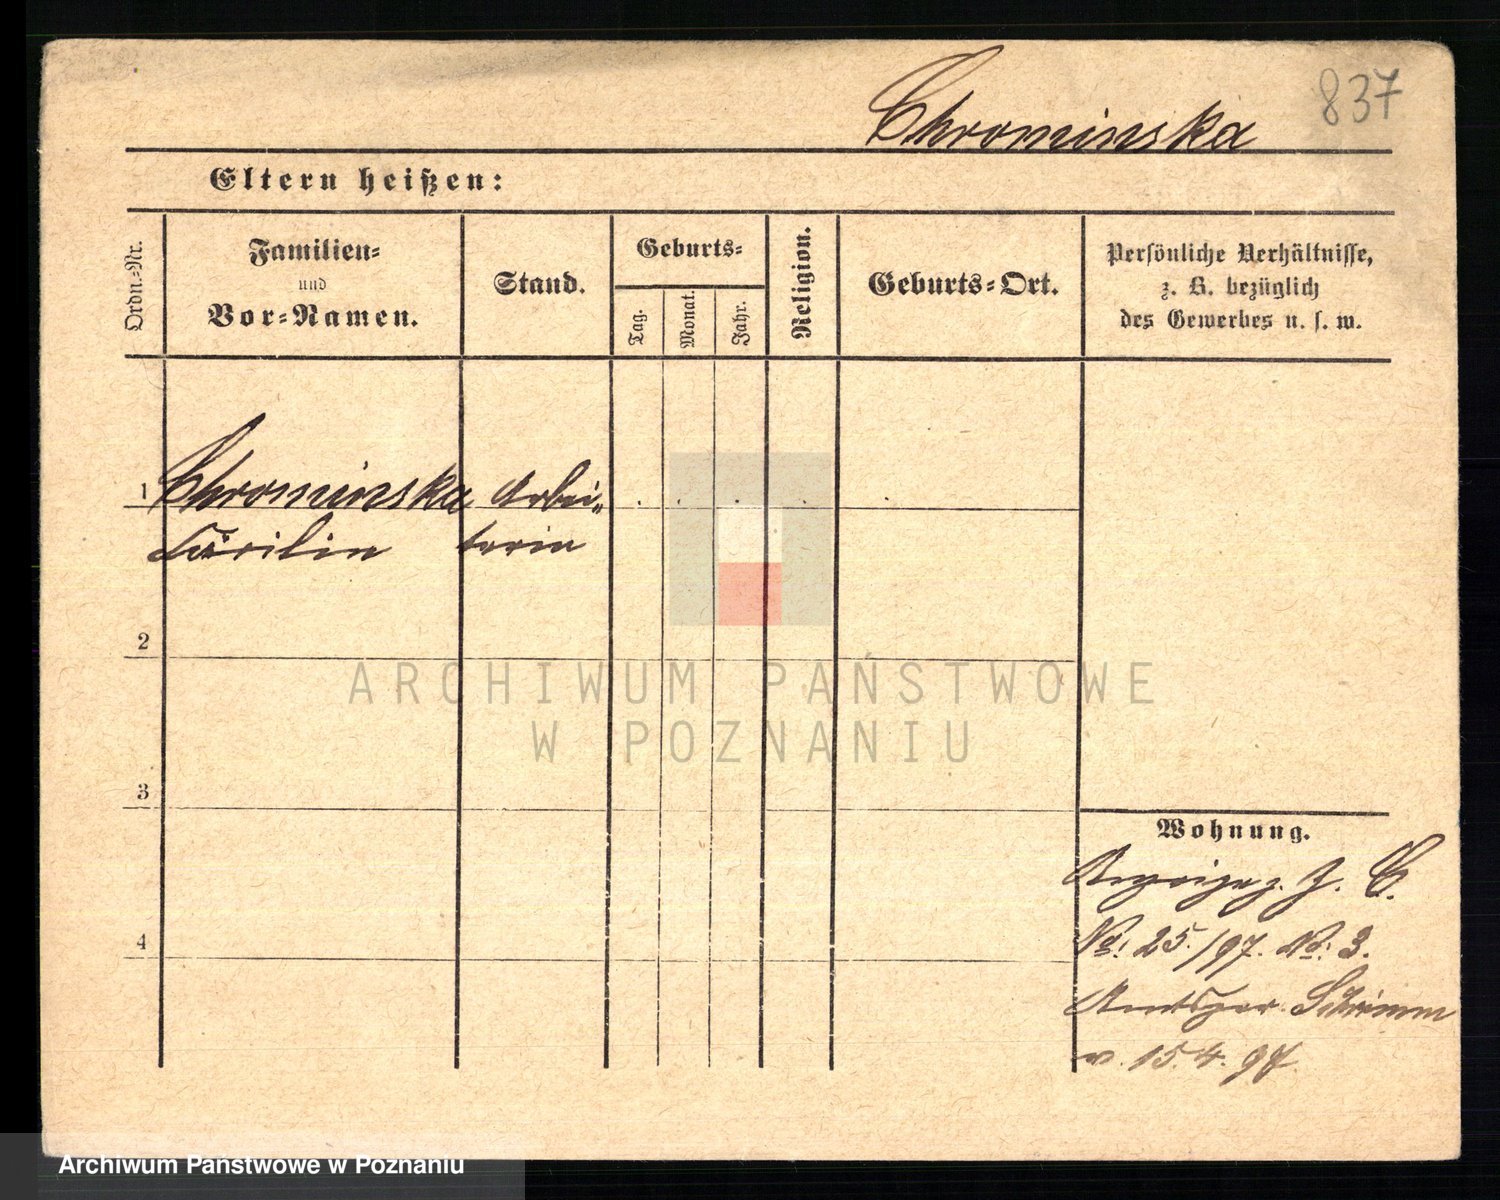 Chrominska 837
Eltern heißen:
Ordn.-Nr.
Familien-
und
Vor-Namen.
Stand.
Geburts-
Tag.
Monat.
Jahr.
Religion.
Geburts-Ort.
Persönliche Verhältnisse,
z. B. bezüglich
des Gewerbes u. s. w.
1 Chrominska Arbei-
Cäcilia terin
2
3
4
Wohnung.
J. C.
No: 25./97. No: 3.
Amtsger. Schrimm
v. 15.4.97
ARCHIWUM PAŃSTWOWE
W POZNANIU
Archiwum Państwowe w Poznaniu